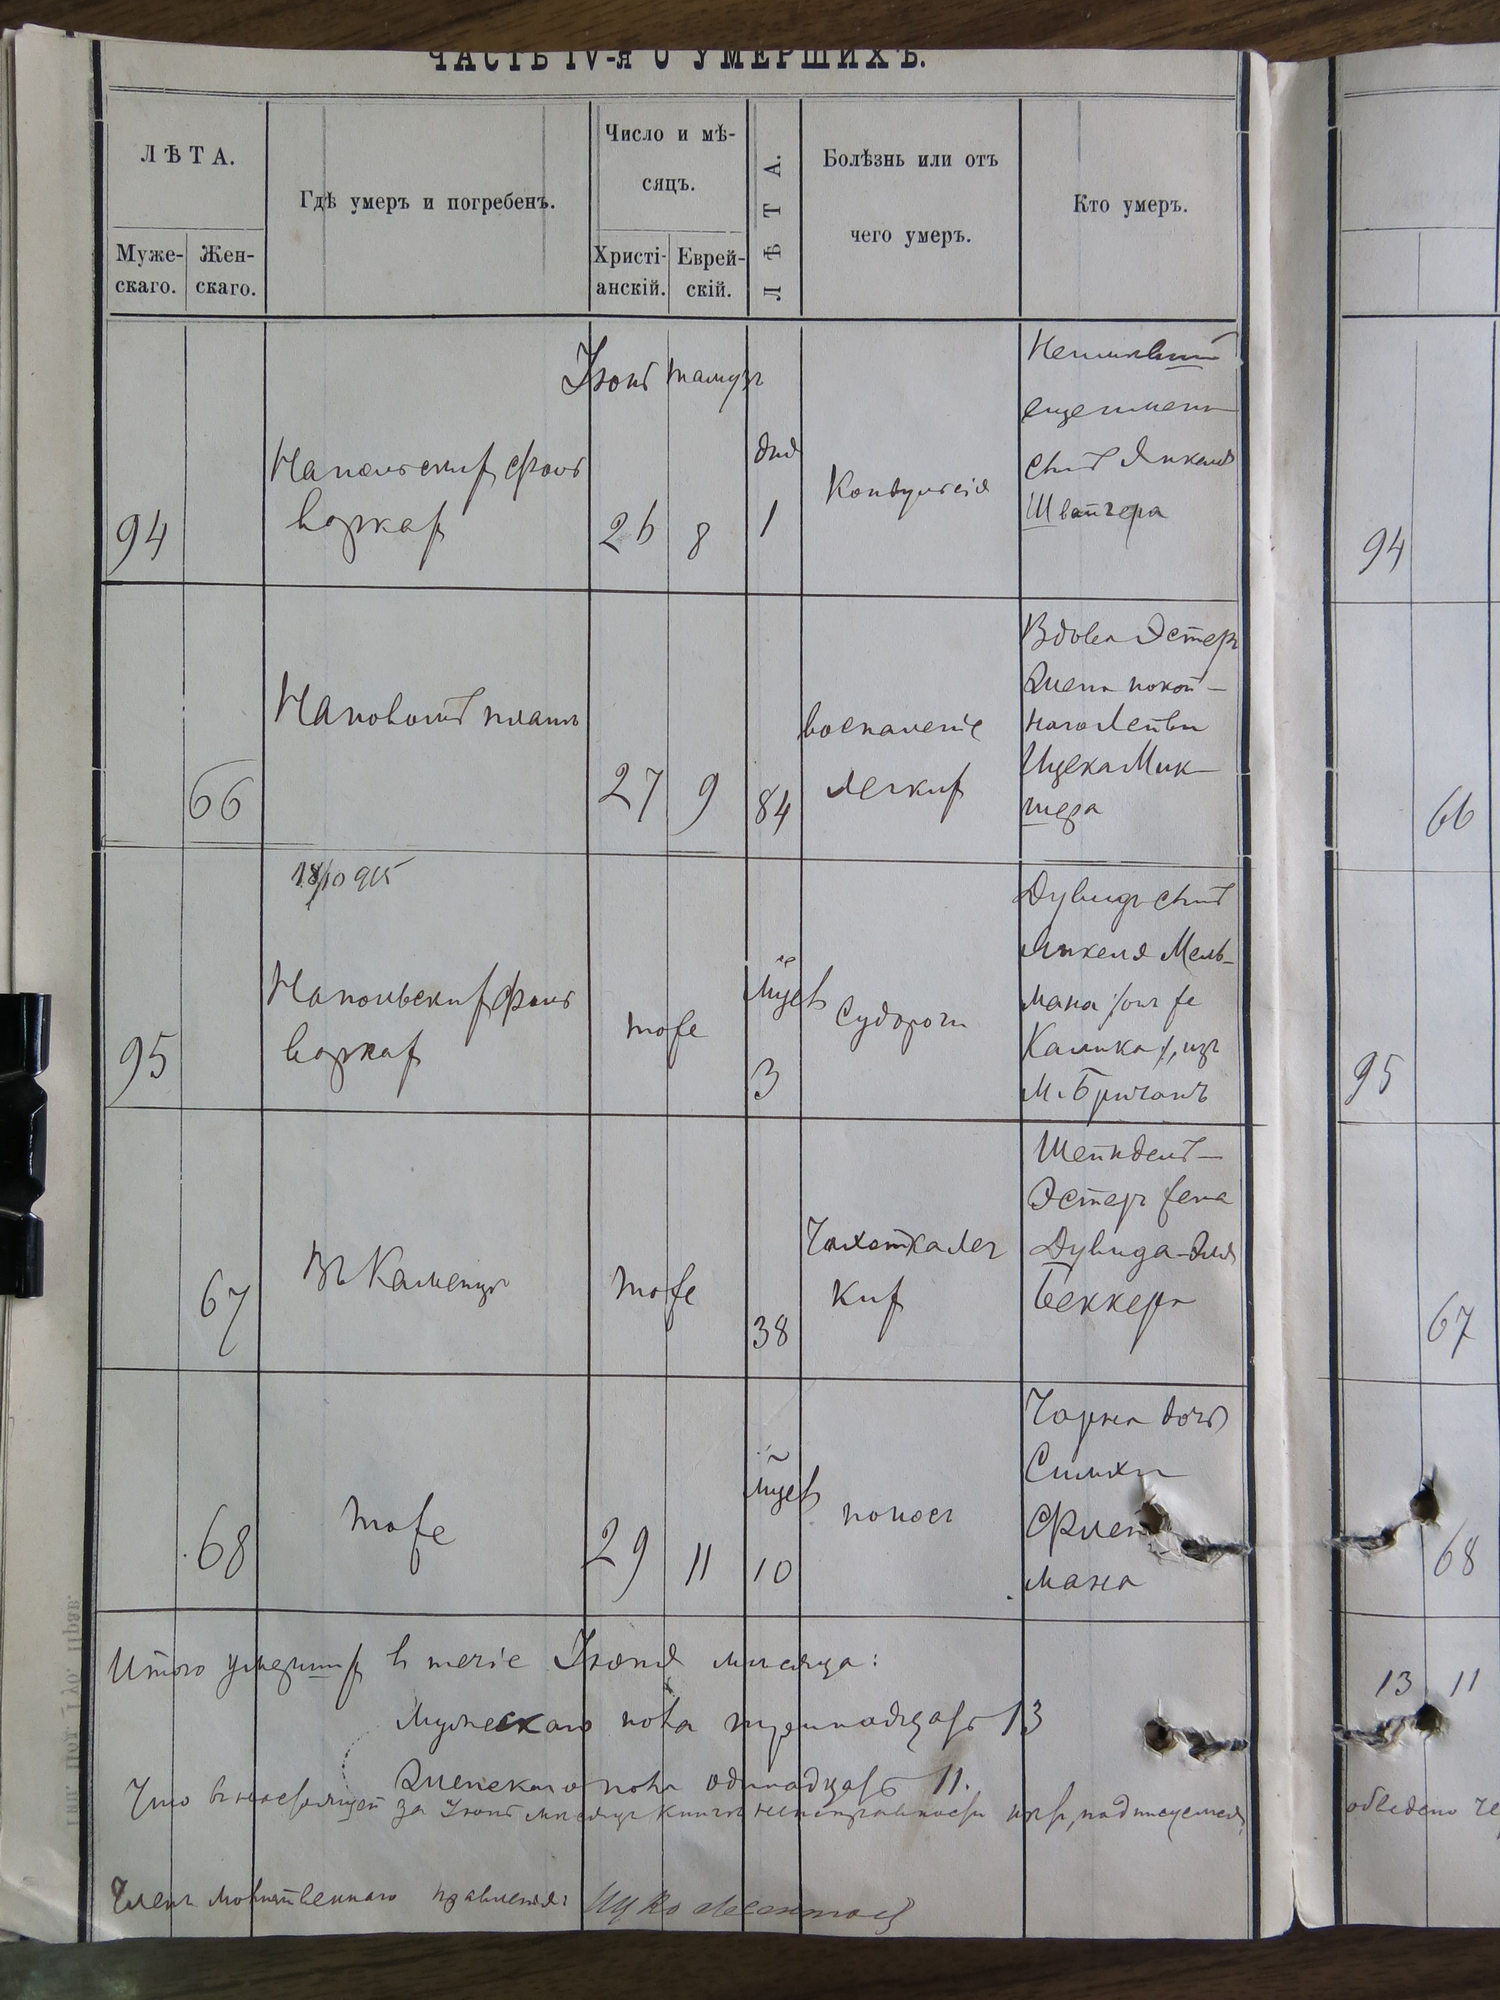 ЧАСТЬ IV-я О УМЕРШИХЪ.
ЛѢТА.
Муже-
скаго.
Жен-
скаго.
Гдѣ умеръ и погребенъ.
Число и мѣ-
сяцъ.
Христі-
анскій.
Еврей-
скій.
ЛѢТА.
Болѣзнь или отъ
чего умеръ.
Кто умеръ.
Іюнь тамузъ
94
На польскихъ фоль
варкахъ
26
8
дня
1
Конвульсія
Неимѣвшій
еще имени
сынъ Янкеля
Швайгера
94
66
На новомъ планѣ
27
9
84
воспаленіе
легкихъ
Вдова Эстеръ
жена покой-
наго Лейбы
Ицека Мик-
тера
66
18/10 915
95
На польскихъ фоль
варкахъ
тоже
мѣсяц
3
Судороги
Дувидъ сынъ
Янкеля Мель-
мана /онъ же
Калика/, изъ
м. Бричанъ
95
67
Въ Каменцѣ
тоже
38
Чахотка лег
кихъ
Шейндель-
Эстеръ жена
Дувида-Эля
Беккера
67
68
тоже
29
11
мѣсяц
10
поносъ
Чарна дочь
Симхи
Флей
мана
68
Итого умершихъ въ теченіе Іюня мѣсяца:
Мужескаго пола тринадцать 13
Женскаго пола одинадцать 11.
13 11
Что въ настоящей за Іюнь мѣсяцъ книгѣ неисправностей нѣтъ, подписуемся
Членъ молитвеннаго правленія: